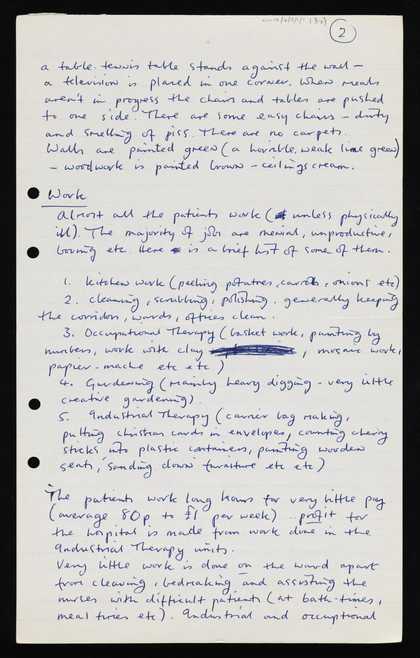 2
a table-tennis table stands against the wall -
a television is placed in one corner. When meals
aren't in progress the chairs and tables are pushed
to one side. There are some easy chairs - dirty
and smelling of piss. There are no carpets.
Walls are painted green (a horrible, weak lime green)
- woodwork is painted brown - ceilings cream.
Work
Almost all the patients work (unless physically
ill). The majority of jobs are menial, unproductive,
boring etc. Here is a brief list of some of them.
1. Kitchen work (peeling potatoes, carrots, onions etc)
2. Cleaning, scrubbing, polishing. generally keeping
the corridors, wards, offices clean.
3. Occupational Therapy (basket work, painting by
numbers, work with clay, mosaic work,
papier-mache etc etc)
4. Gardening (mainly heavy digging - very little
creative gardening).
5. Industrial Therapy (carrier bag making,
putting christmas cards in envelopes, counting cherry
sticks into plastic containers, painting wooden
seats, sanding down furniture etc etc)
The patients work long hours for very little pay
(average 80p to £1 per week) profit for
the hospital is made from work done in the
Industrial Therapy units.
Very little work is done on the ward apart
from cleaning, bedmaking and assisting the
nurses with difficult patients (at bath-times,
meal times etc). Industrial and occuptional